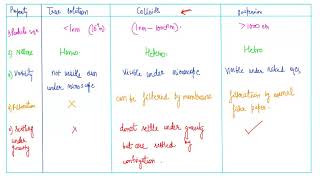 Property
True solution
Colloids
Suspension
<1nm (10⁻⁹m)
(1nm - 1000nm)
>1000nm
Nature
Homo.
Hetero.
Hetro
Visibility
not visible even
under microscope
visible under microscope
visible under naked eyes
Filtration
×
can be filtered by membrane
filteration by normal
filter paper.
Settling
under
gravity
×
donot settle under gravity
but are settled by
centrifugation.
✓